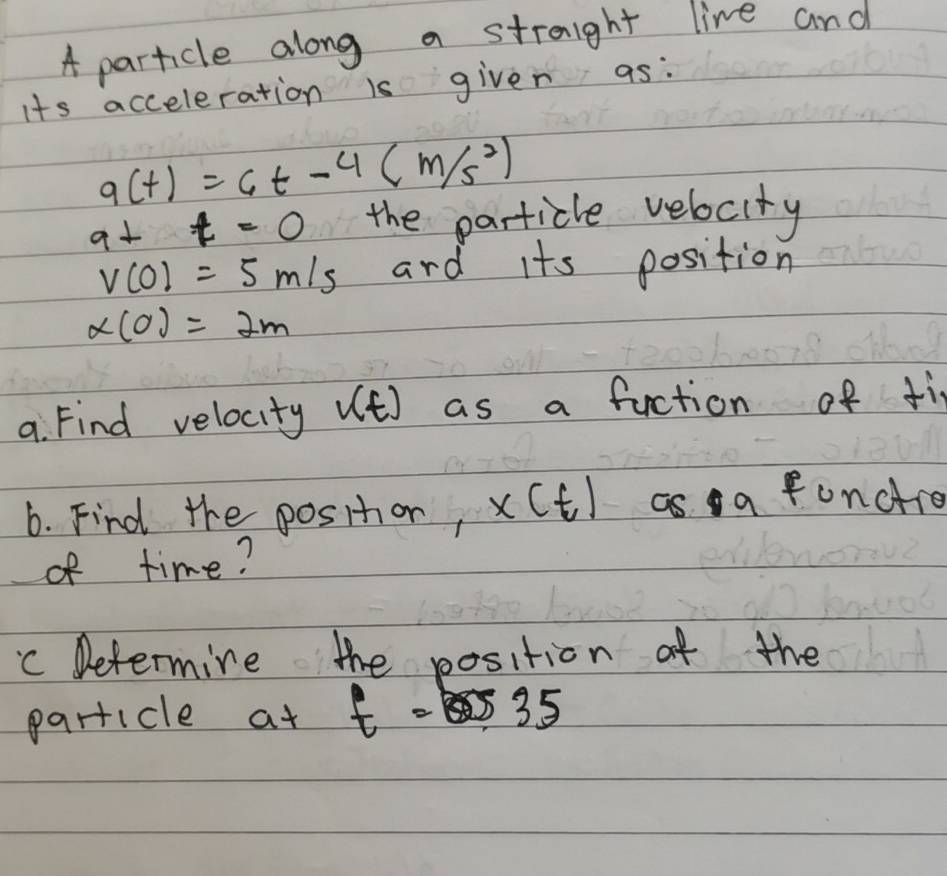 A particle along a straight line and
its acceleration is given as:
a(t) = 6t - 4 (m/s²)
at t = 0 the particle velocity
v(0) = 5 m/s and its position
x(0) = 2m
a. Find velocity v(t) as a fuction of ti
b. Find the position, x(t) as a functio
of time?
c Determine the position of the
particle at t = 35